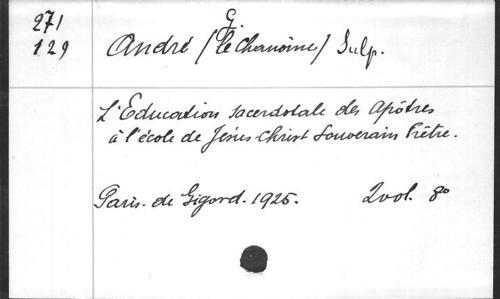 271
129
G.
André (le chanoine) Sulp.
L'Education sacerdotale des Apôtres
à l'école de Jésus Christ Souverain Prêtre.
Paris. de Gigord. 1925. 2 vol. 8o